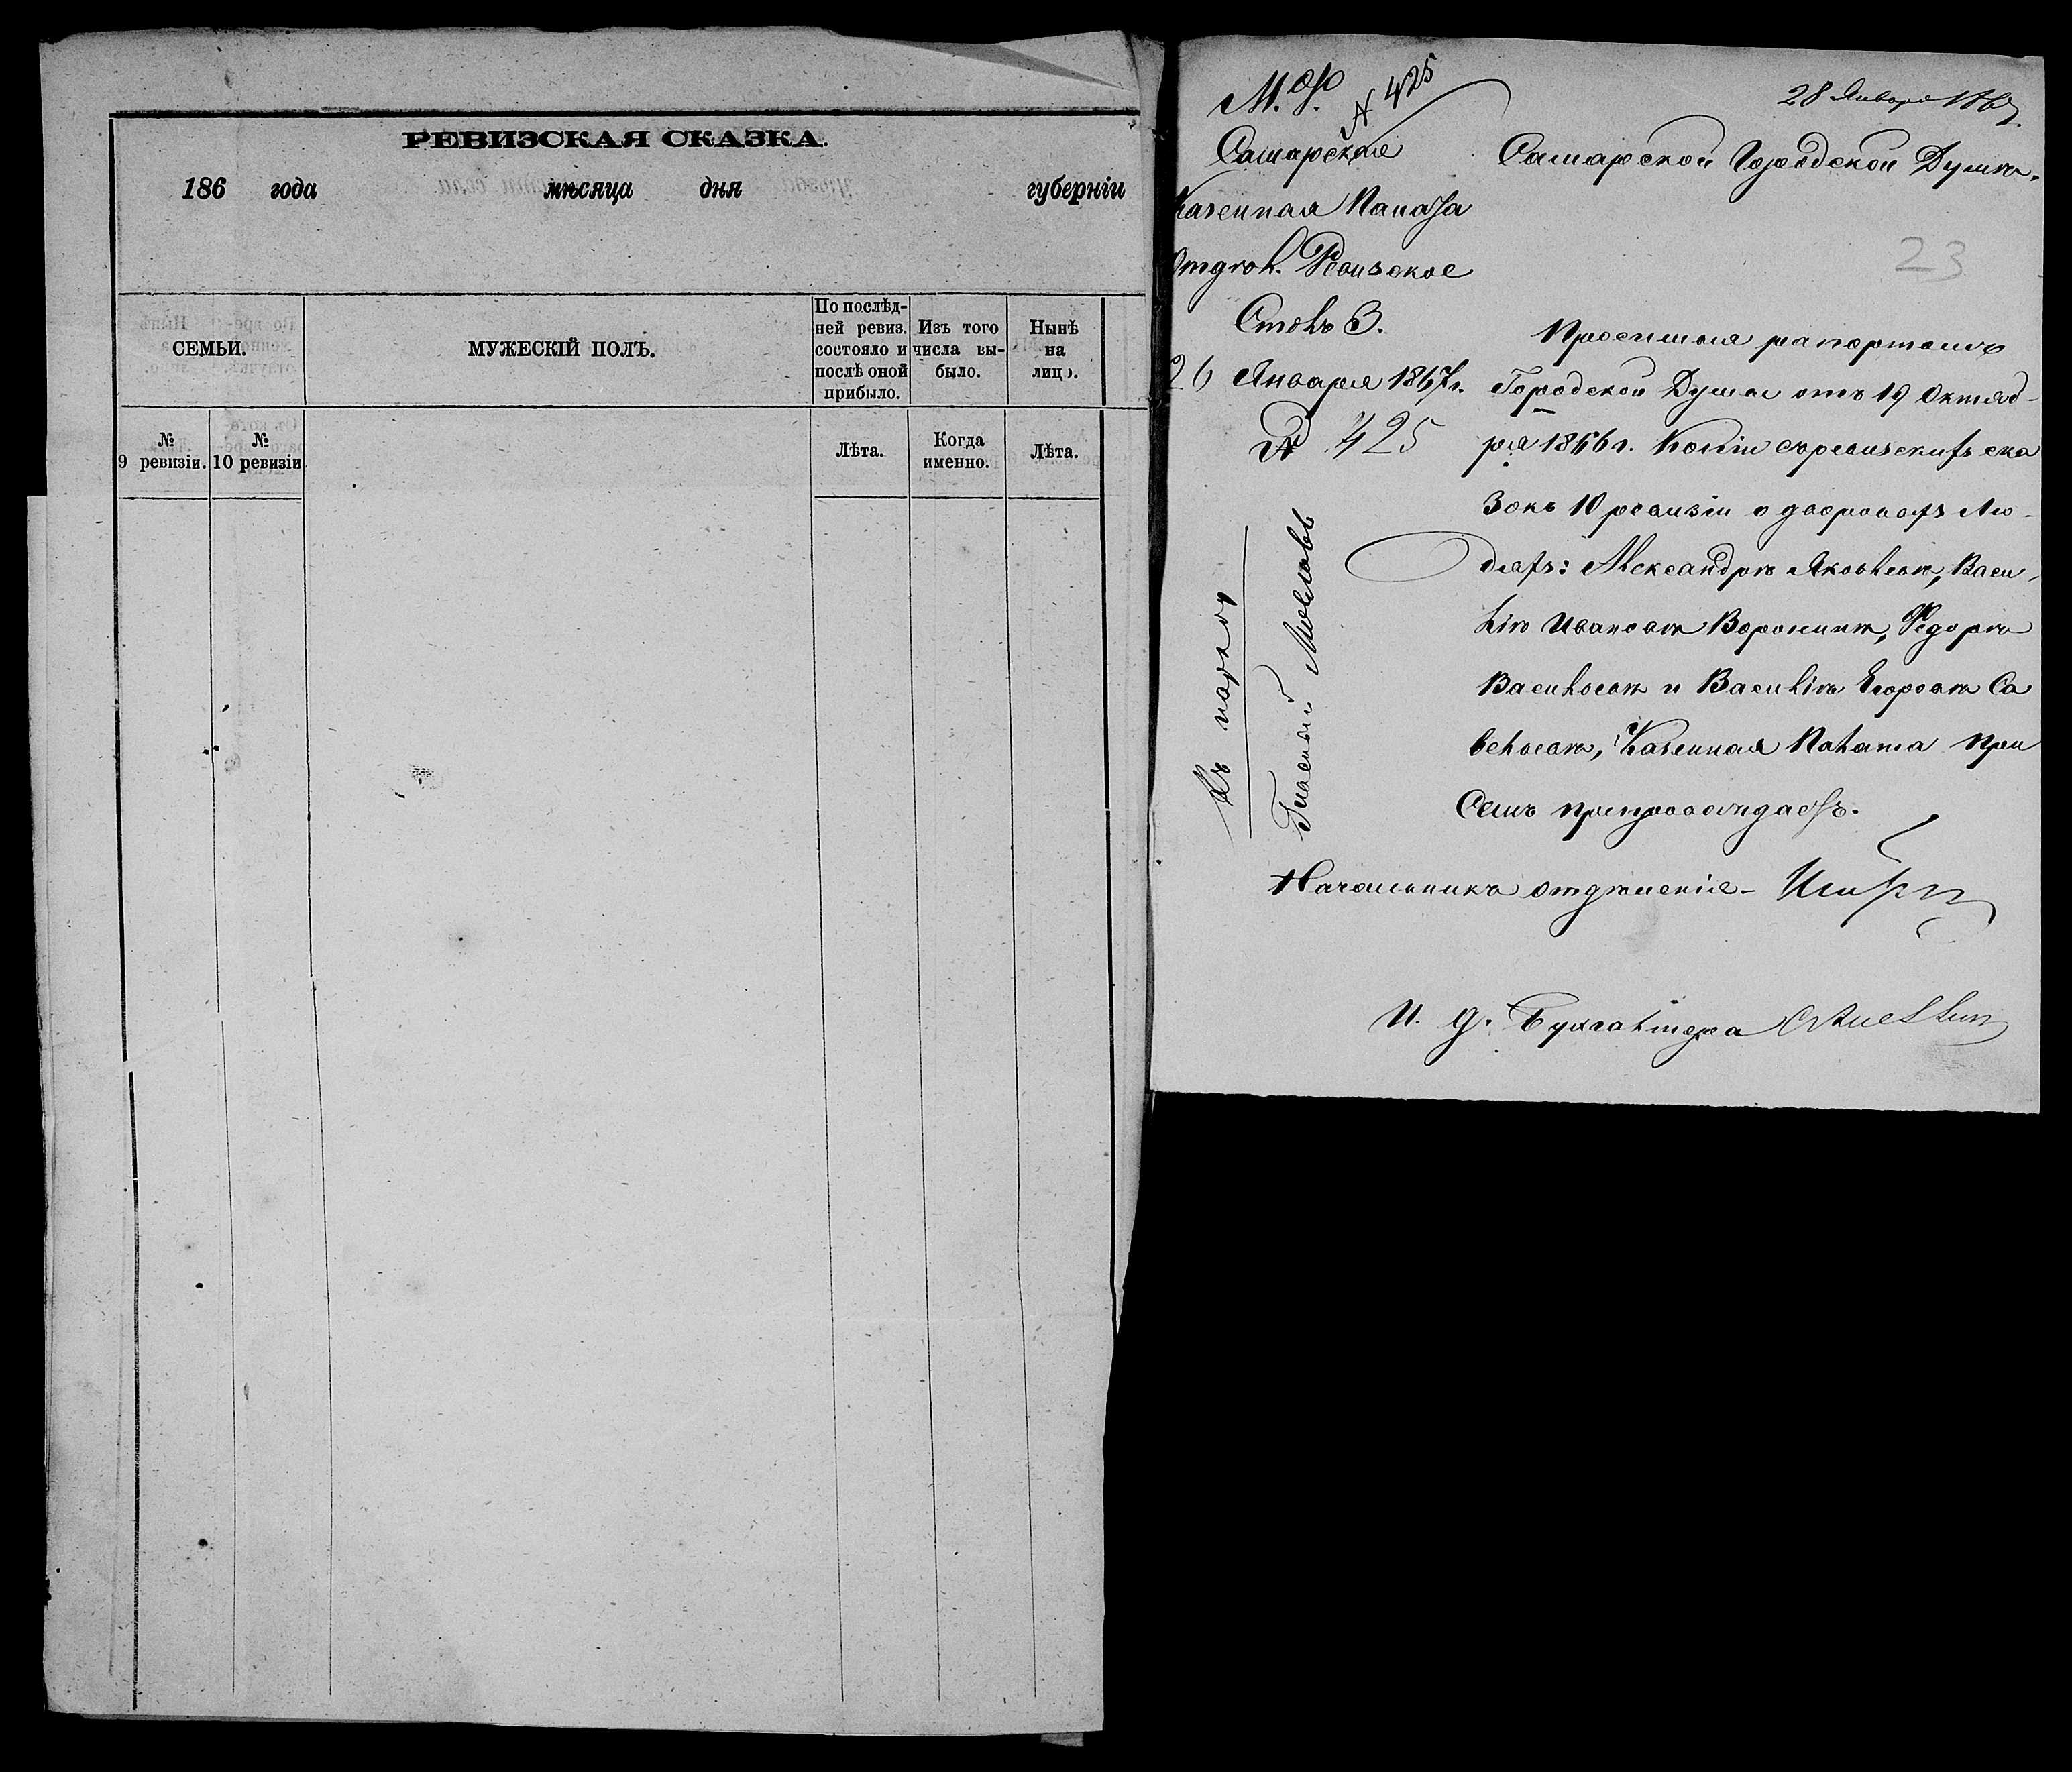 РЕВИЗСКАЯ СКАЗКА.
186 года мѣсяца дня губерніи
СЕМЬИ.
МУЖЕСКІЙ ПОЛЪ.
По послѣд-
ней ревиз.
состояло и
послѣ оной
прибыло.
Изъ того
числа вы-
было.
Нынѣ
на
лицо.
№
9 ревизіи.
№
10 ревизіи
Лѣта.
Когда
именно.
Лѣта.
М. Ф.
№ 425
28 Января 1867.
Самарская
Казенная Палата
Отдѣл. Ревизское
Столъ 3.
26 Января 1867 г.
№ 425
Самарской Городской Думѣ.
23
Просимыя рапортомъ
Городской Думы отъ 19 Октяб-
ря 1866 г. Копіи съ ревизскихъ ска
зокъ 10 ревизіи о дворовыхъ лю-
дяхъ: Александрѣ Яковлевѣ, Васи-
ліѣ Ивановѣ Воронинѣ, Ѳедорѣ
Васильевѣ и Василіѣ Егоровѣ Са
вельевѣ, Казенная Палата при
семъ препровождаетъ.
Къ
Гласный
Начальникъ отдѣленія
И. д. Бухгалтера